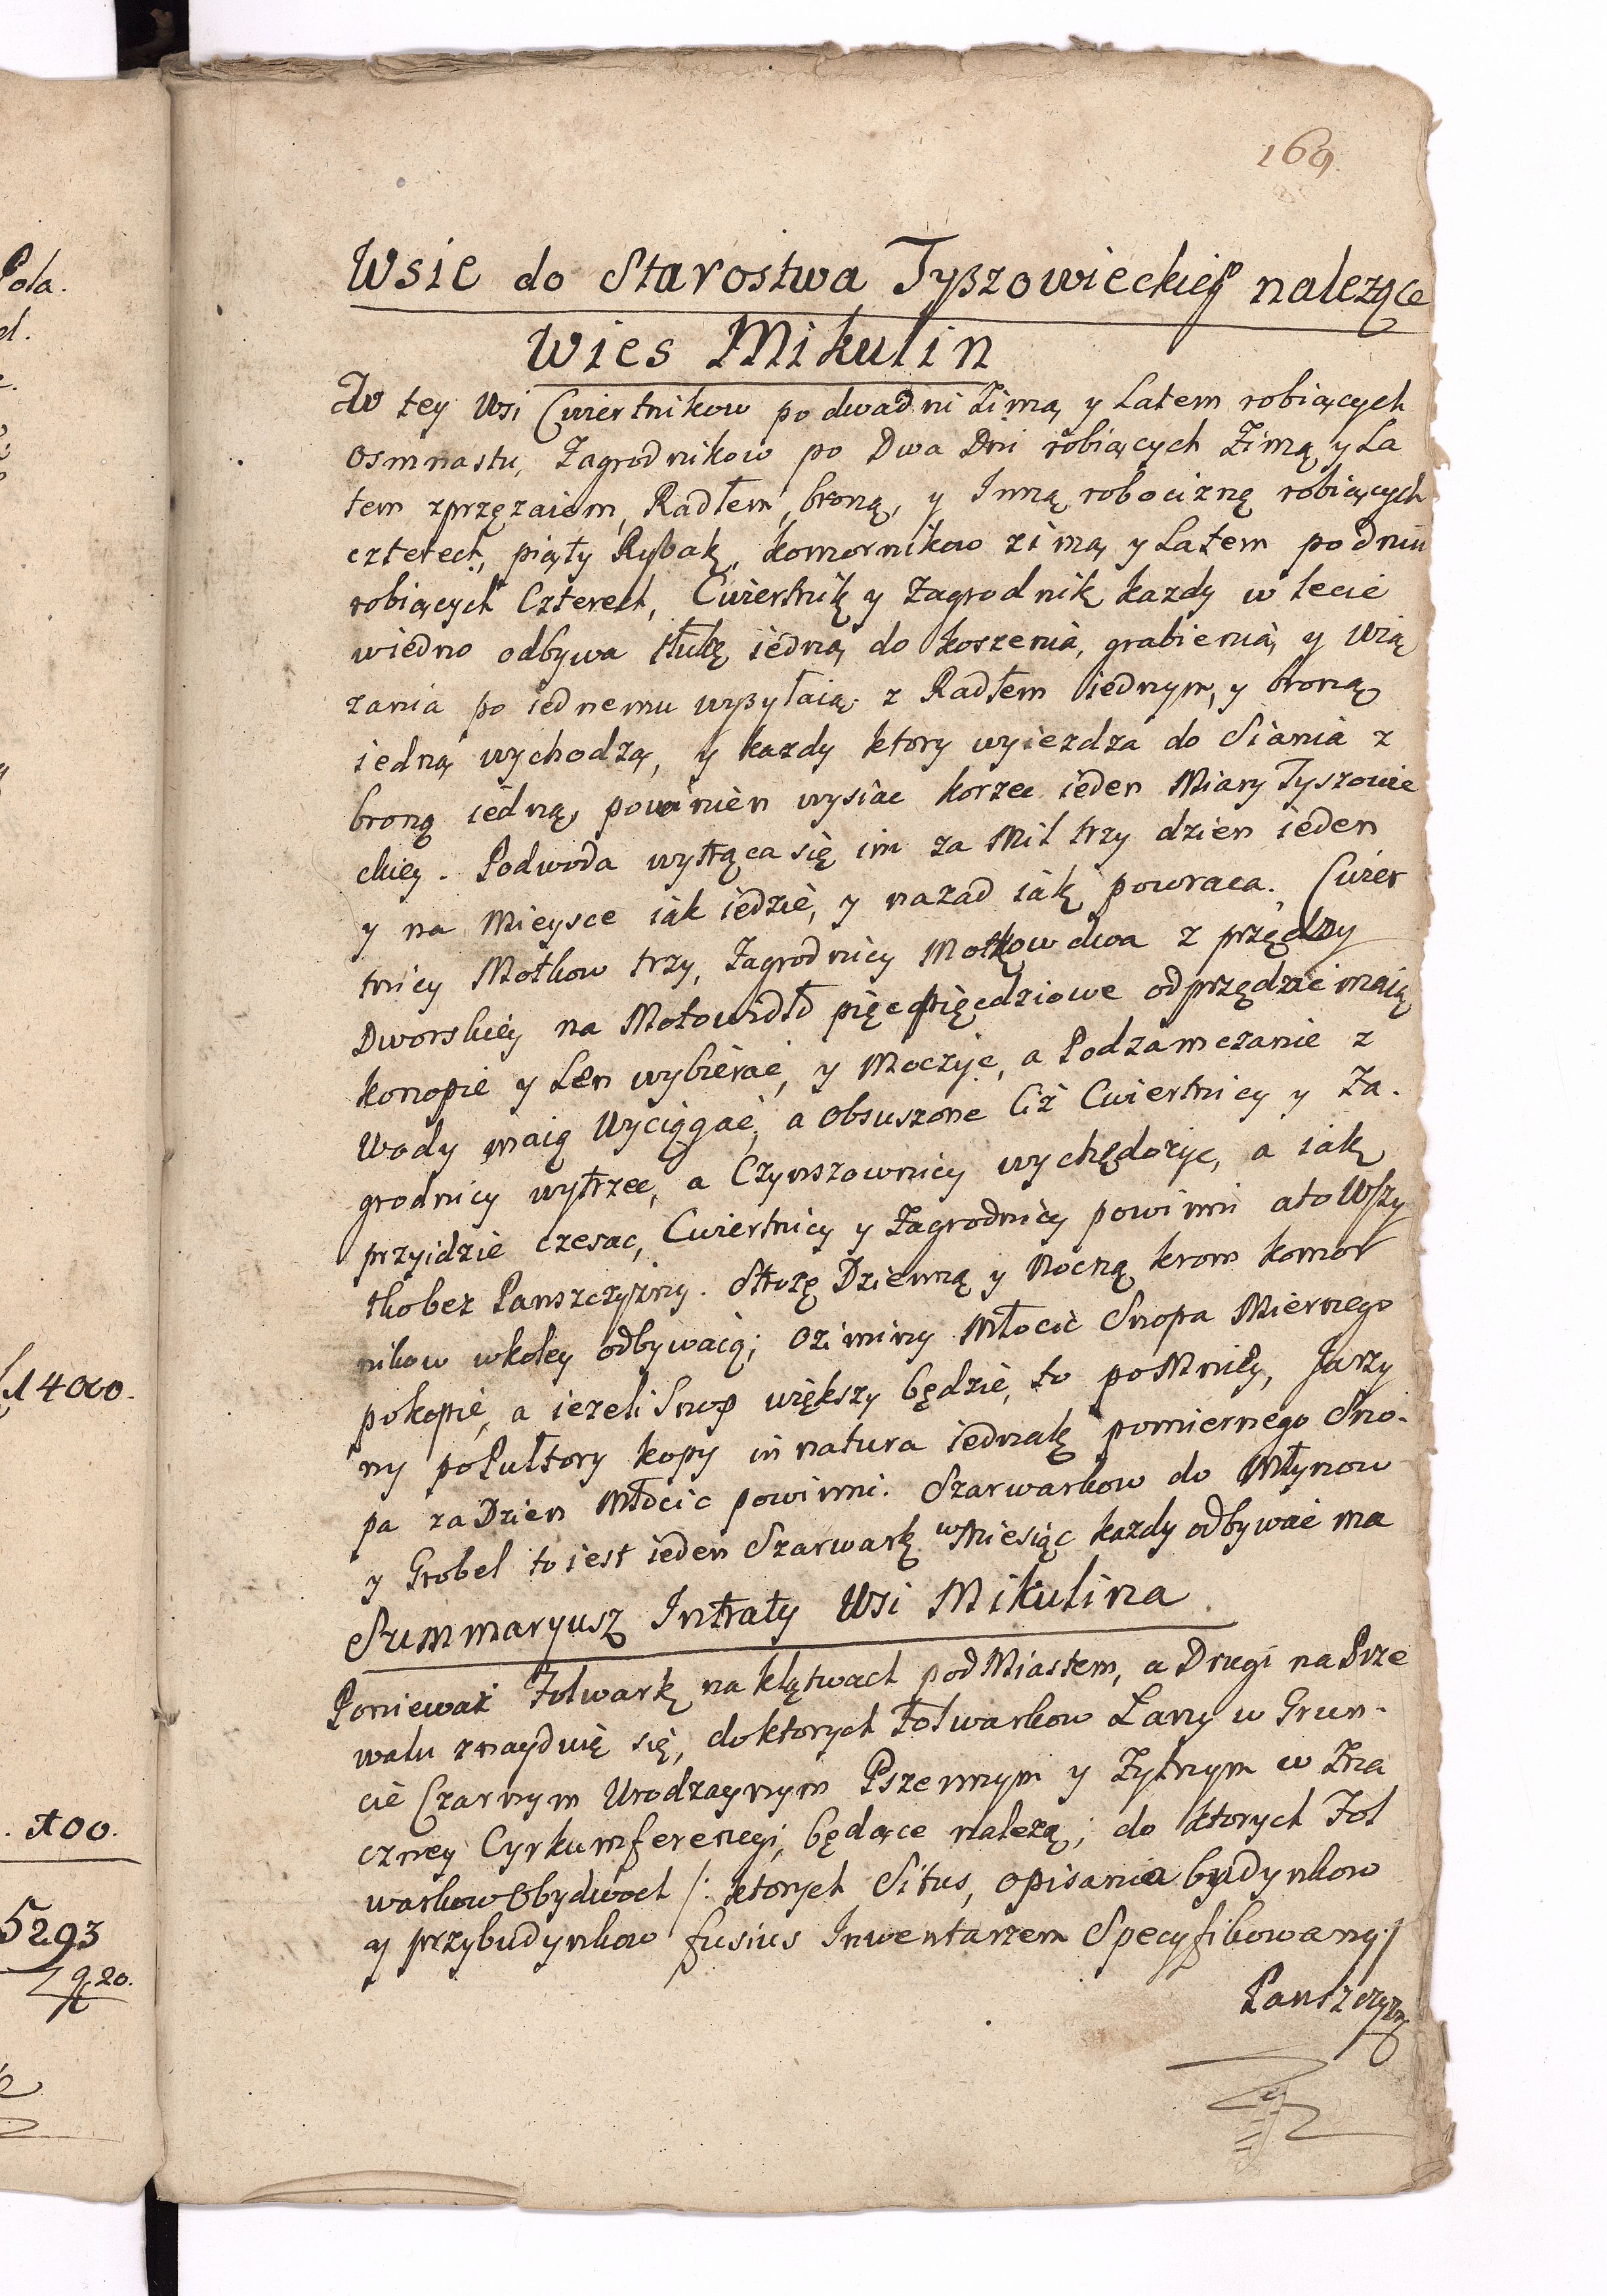 Pola.
d.
ƚ 4000.
. 100.
5293
9 20.
169.
Wsie do Starostwa Tyszowieckieg° nalezące
Wies Mikulin
W tey Wsi Cwiertnikow po dwa dni Zimą y Latem robiących
osmnastu, Zagrodnikow po Dwa Dni robiących Zimą y La
tem zprzęzaiem, Radłem, broną, y Inną robocizną robiących
czterech, piąty Rybak, komornikow zimą y Latem po dniu
robiących Czterech, Cwiertnik y Zagrodnik kazdy w lecie
wiedno odbywa tłukę iedną do koszenia, grabienia, y Wią
zania po iednemu wysyłaią z Radłem iednym, y broną
iedną wychodzą, y kazdy ktory wyiezdza do Siania z
broną iedną, powinien wysiac korzec ieden Miary Tyszowie
ckiey. Podwoda wytrąca się im za Mil trzy dzien ieden
y na Mieysce iak iedzie, y nazad iak powraca. Cwier
tnicy Motkow trzy, Zagrodnicy Motkow dwa z przędzy
Dworskiey na Motowidło pięcpięcdziowe odprządzac maią
konopie y Len wybierac, y Moczyc, a Podzamczanie z
Wody maią Wyciągac, a obsuszone Ciż Cwiertnicy y Za-
grodnicy wytrzec, a Czynszownicy wychędozyc, a iak
przyidzie czesac, Cwiertnicy y Zagrodnicy powinni a to Wszy
tko bez Panszczyzny. Strozę Dzienną y Nocną krom komor
nikow wkoley odbywaią; oziminy Młocic Snopa Miernego
pokopie, a iezeli Snop większy będzie, to po Mniey, Jarzy
ny po Pułtory kopy in natura iednak pomiernego Sno-
pa za Dzien Młocic powinni. Szarwarkow do Młynow
y Grobel to iest ieden Szarwark w Miesiąc kazdy odbywac ma
Summaryusz Intraty Wsi Mikulina
Poniewaz Folwark na klątwach pod Miastem, a Drugi na Prze
walu znayduię się, do ktorych Folwarkow Łany w Grun-
cie Czarnym Urodzaynym Pszennym y Zytnym w Zna
czney Cyrkumferencyi, będące nalezą; do ktorych Fol
warkow Obydwoch /: ktorych Situs, opisania budynkow
y przybudynkow fusius Inwentarzem Specyfikowany :/
Panszczyzn